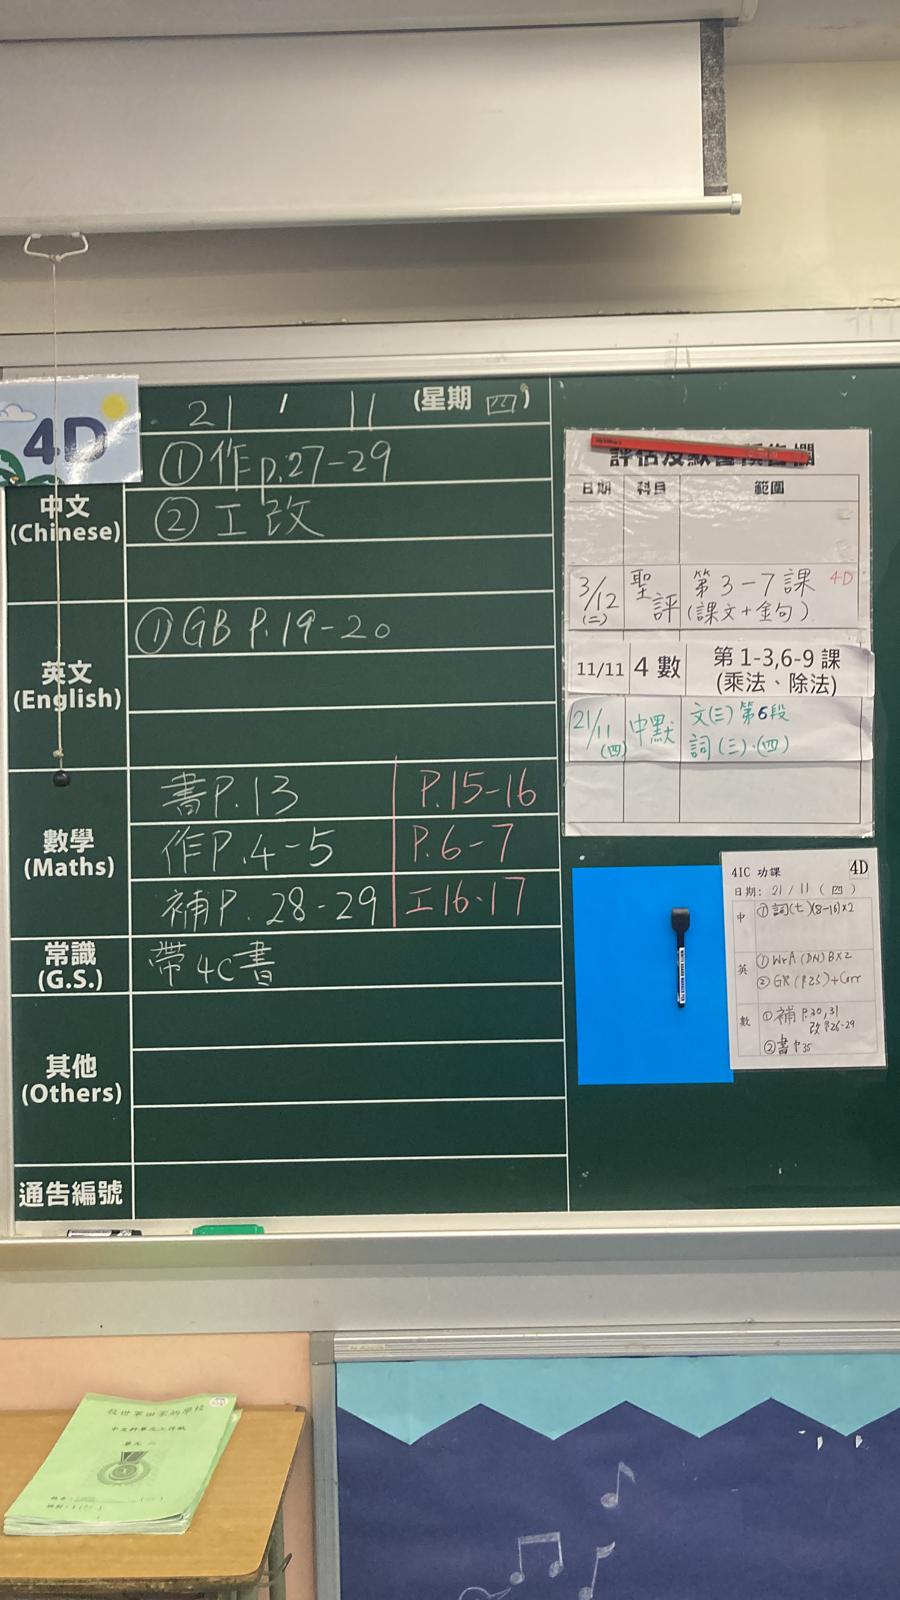 4D
21 / 11 (星期 四)
中文
(Chinese)
①作p.27-29
②工改
英文
(English)
①GB P.19-20
數學
(Maths)
書P.13 P.15-16
作P.4-5 P.6-7
補P.28-29 工16-17
常識
(G.S.)
帶4C書
其他
(Others)
通告編號
日期 科目 範圍
3/12 (二) 聖評 第3-7課 4D
(課文+金句)
11/11 4數 第1-3,6-9課
(乘法、除法)
21/11 (四) 中默 文(三)第6段
詞(三)、(四)
4IC 功課 4D
日期: 21/11(四)
中 ①詞(七)(8-16)x2
英 ①WrA (DN) Bx2
②GR (P.25)+Corr
數 ①補 P.30,31
改 P.26-29
②書P35
中文科單元工作紙